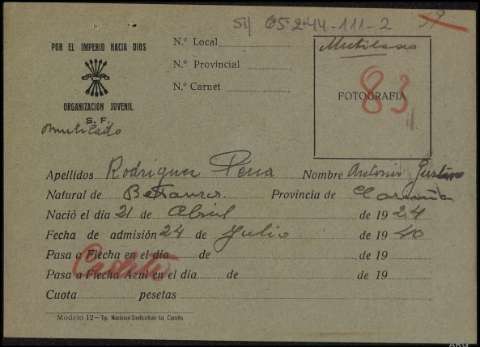 Si/ 65244-111-2
POR EL IMPERIO HACIA DIOS
N.º Local
Mutilado
N.º Provincial
N.º Carnet
83
FOTOGRAFIA
ORGANIZACIÓN JUVENIL
S. F.
mutilado
Apellidos Rodriguez Pena Nombre Antonio Gustavo
Natural de Betanzos Provincia de Coruña
Nació el día 21 de Abril de 1924
Fecha de admisión 24 de Julio de 1940
Pasa a Flecha en el día de de 19
Pasa a Flecha Azul en el día de de 19
Cuota pesetas
Modelo 12-Tip. Nacional-Sindicalista-La Coruña